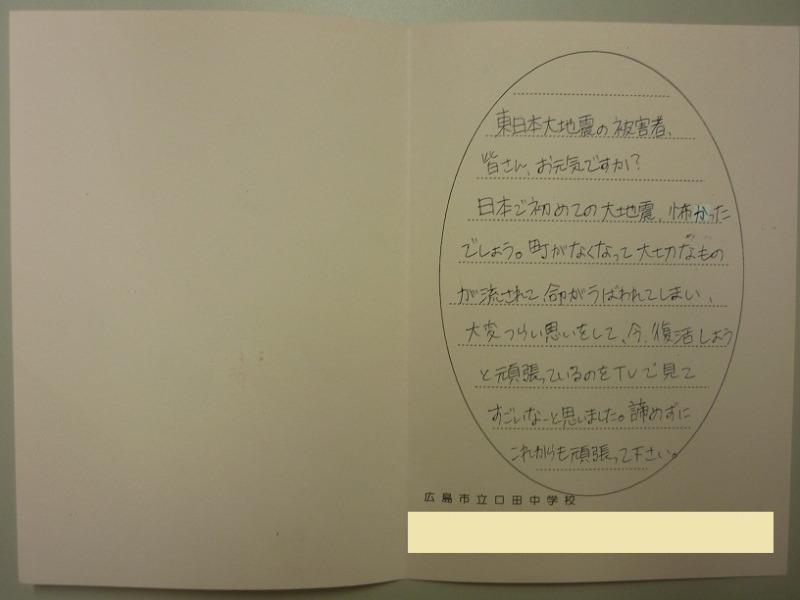 東日本大地震の被害者、
皆さん、お元気ですか?
日本で初めての大地震、怖かった
でしょう。町がなくなって大切なもの
が流されて、命がうばわれてしまい、
大変つらい思いをして、今、復活しよう
と頑張っているのをTVで見て
すごいなーと思いました。諦めずに
これからも頑張って下さい。
広島市立口田中学校